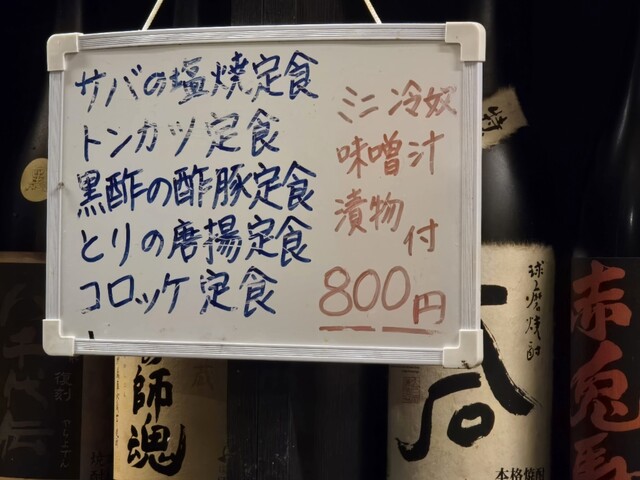 サバの塩焼定食
トンカツ定食
黒酢の酢豚定食
とりの唐揚定食
コロッケ定食
ミニ冷奴
味噌汁
漬物
付
800円
八千代伝
師魂
球磨焼酎
本格焼酎
赤兎馬